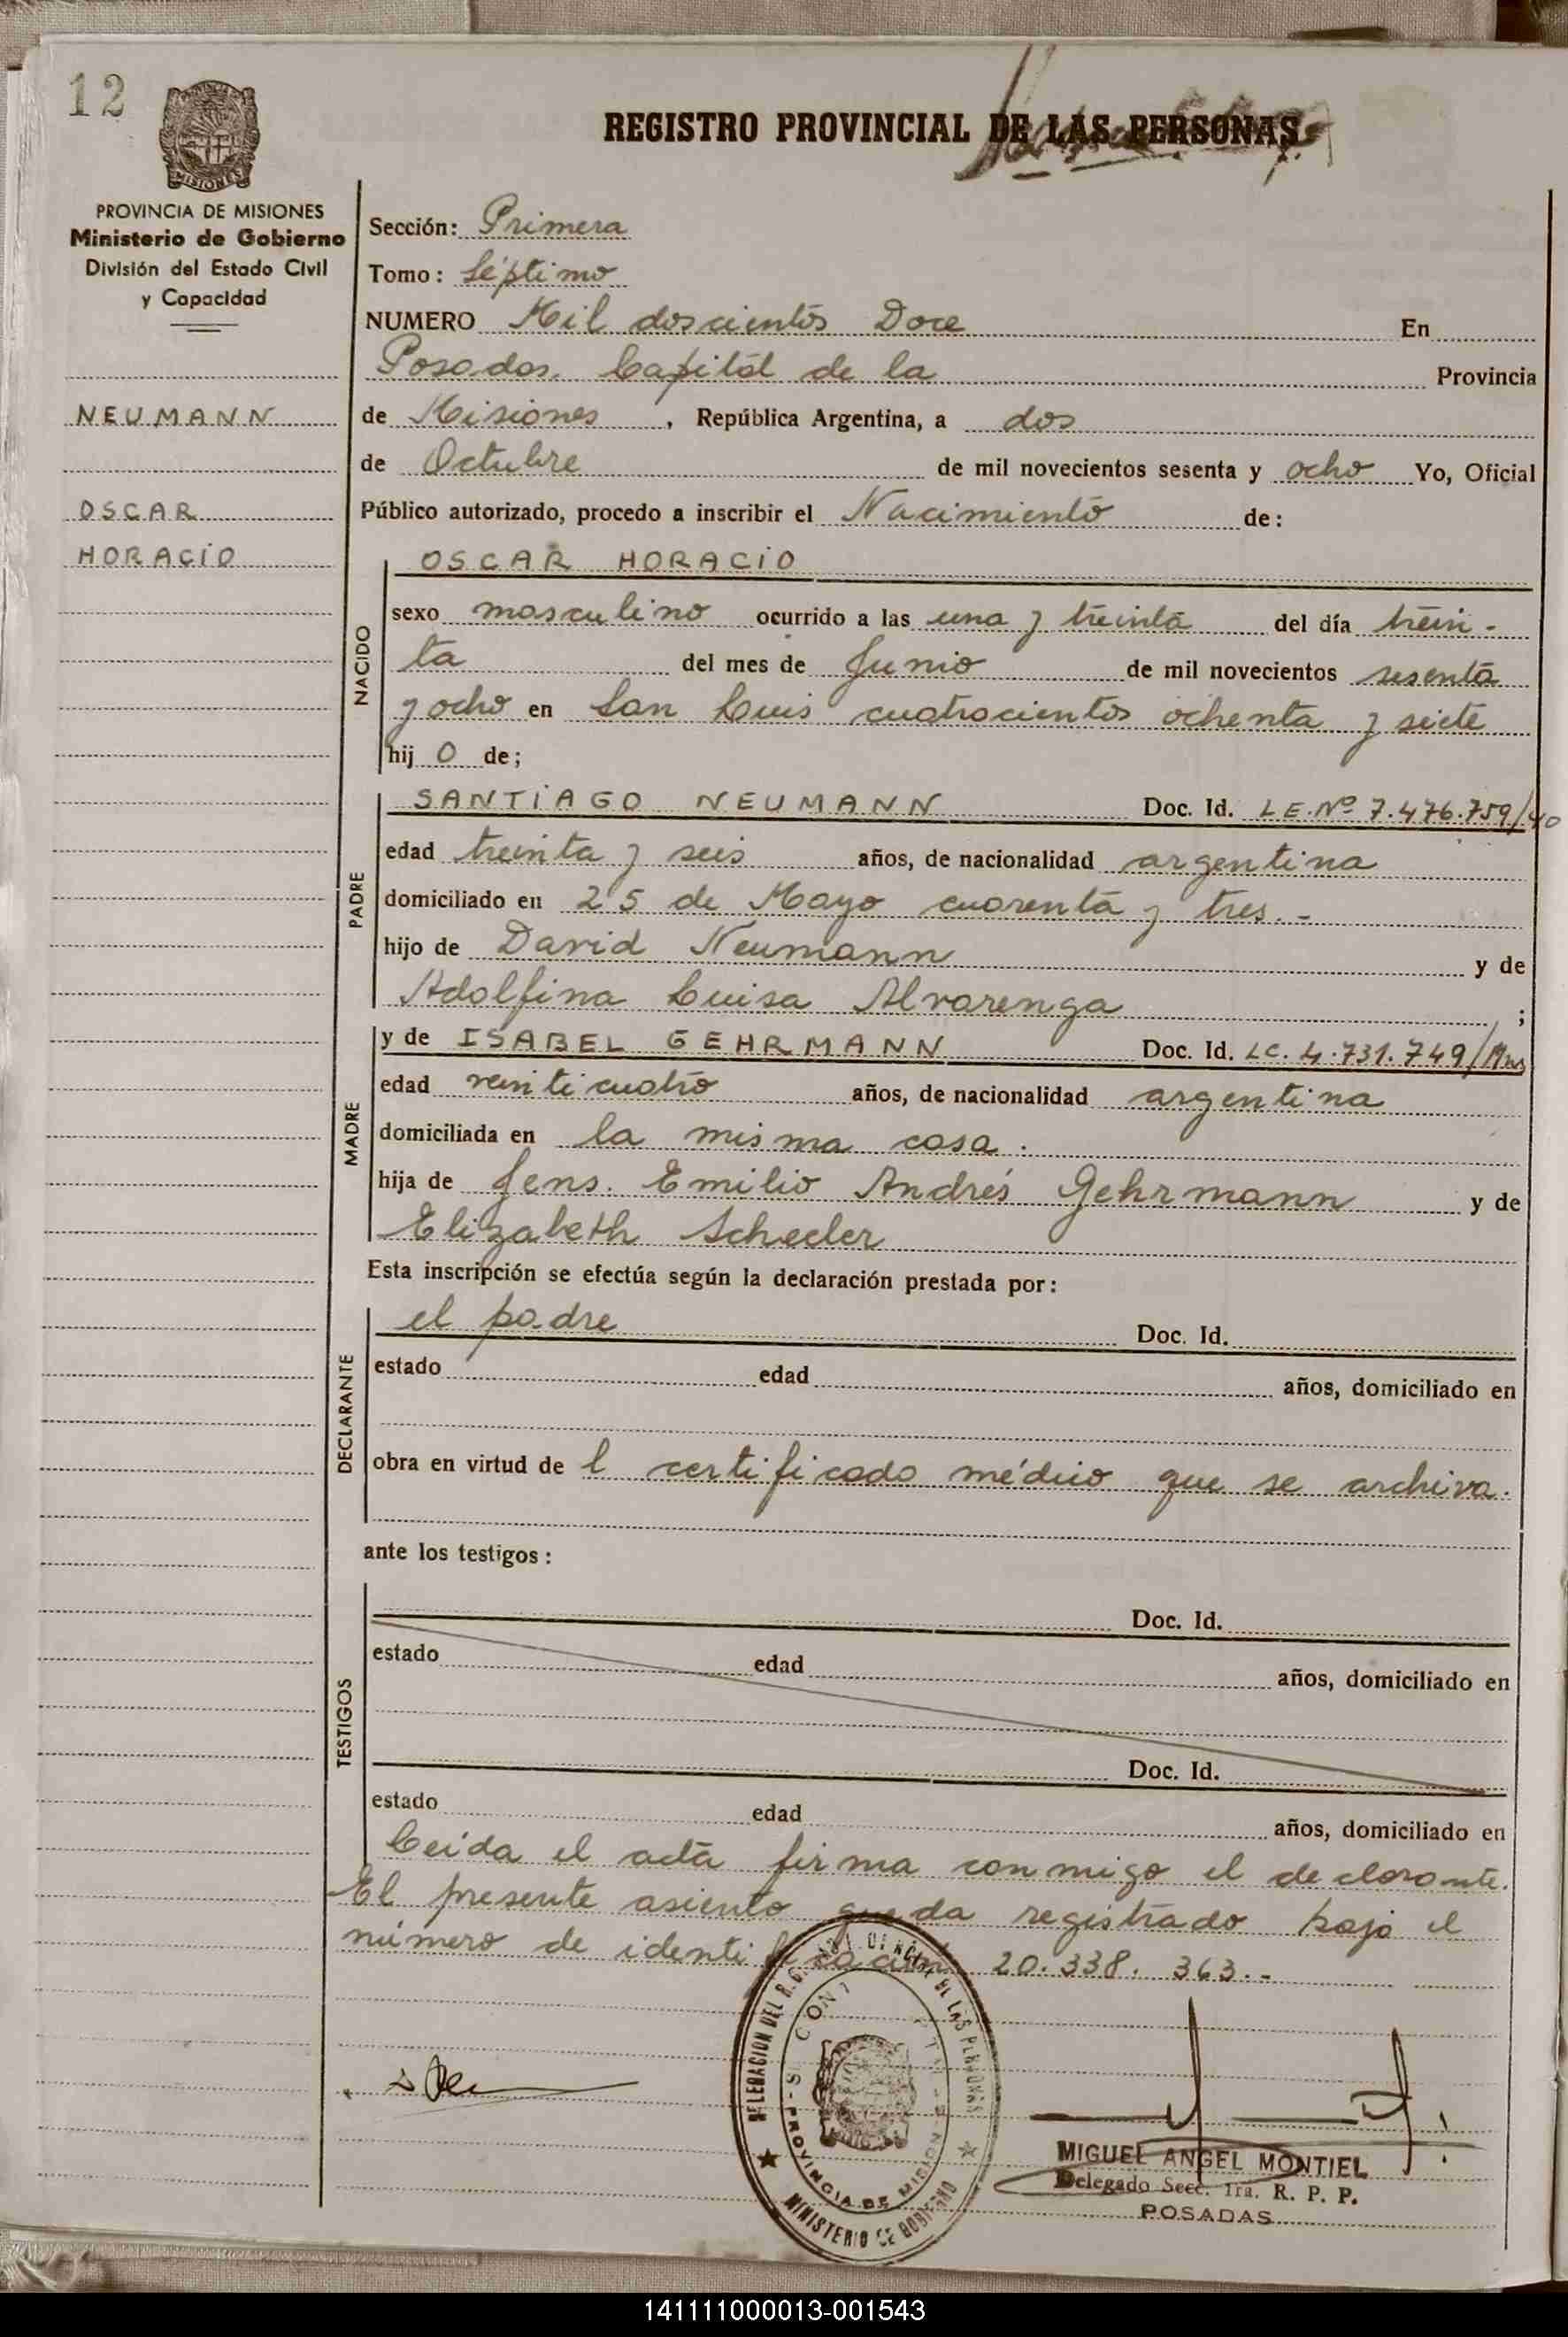 12
MISIONES
PROVINCIA DE MISIONES
Ministerio de Gobierno
División del Estado Civil
y Capacidad
NEUMANN
OSCAR
HORACIO
REGISTRO PROVINCIAL DE LAS PERSONAS
Sección: Primera
Tomo: Séptimo
NUMERO Mil doscientos Doce En
Posadas, Capital de la Provincia
de Misiones, República Argentina, a dos
de Octubre de mil novecientos sesenta y ocho Yo, Oficial
Público autorizado, procedo a inscribir el Nacimiento de:
NACIDO
OSCAR HORACIO
sexo masculino ocurrido a las una y treinta del día trein-
ta del mes de Junio de mil novecientos sesenta
y ocho en San Luis cuatrocientos ochenta y siete
hij o de;
PADRE
SANTIAGO NEUMANN Doc. Id. L.E. Nº 7.476.759/40
edad treinta y seis años, de nacionalidad argentina
domiciliado en 25 de Mayo cuarenta y tres.-
hijo de David Neumann y de
Adolfina Luisa Alvarenga ;
MADRE
y de ISABEL GEHRMANN Doc. Id. LC. 4.731.749/Mns
edad veinticuatro años, de nacionalidad argentina
domiciliada en la misma casa.
hija de Jens. Emilio Andrés Gehrmann y de
Elizabeth Scheeler
Esta inscripción se efectúa según la declaración prestada por:
DECLARANTE
el padre Doc. Id.
estado edad años, domiciliado en
obra en virtud de l certificado médico que se archiva.
ante los testigos:
TESTIGOS
Doc. Id.
estado edad años, domiciliado en
Doc. Id.
estado edad años, domiciliado en
Leída el acta firma conmigo el declarante.
El presente asiento queda registrado bajo el
número de identificación 20.338.363.-
DELEGACION DEL R.G. DE LAS PERSONAS
PROVINCIA DE MISIONES
MINISTERIO DE GOBIERNO
MIGUEL ANGEL MONTIEL
Delegado Secc. 1ra. R. P. P.
POSADAS
141111000013-001543